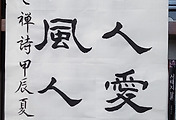 人愛
風人
禪詩甲辰夏